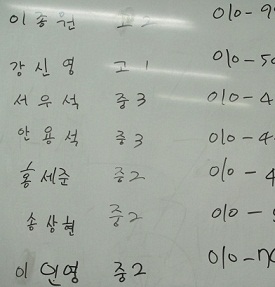 이종원 고2 010-9
강신영 고1 010-50
서우석 중3 010-4
안용석 중3 010-4
홍세준 중2 010-4
송상현 중2 010-
이인영 중2 010-70